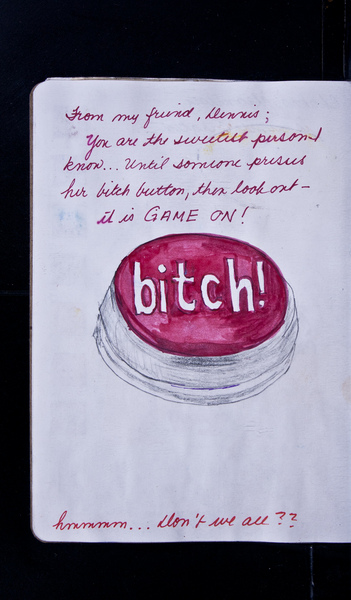 From my friend, Dennis;
You are the sweetest person I
know... Until someone presses
her bitch button, then look out -
it is GAME ON!
bitch!
hmmmm... Don't we all ??